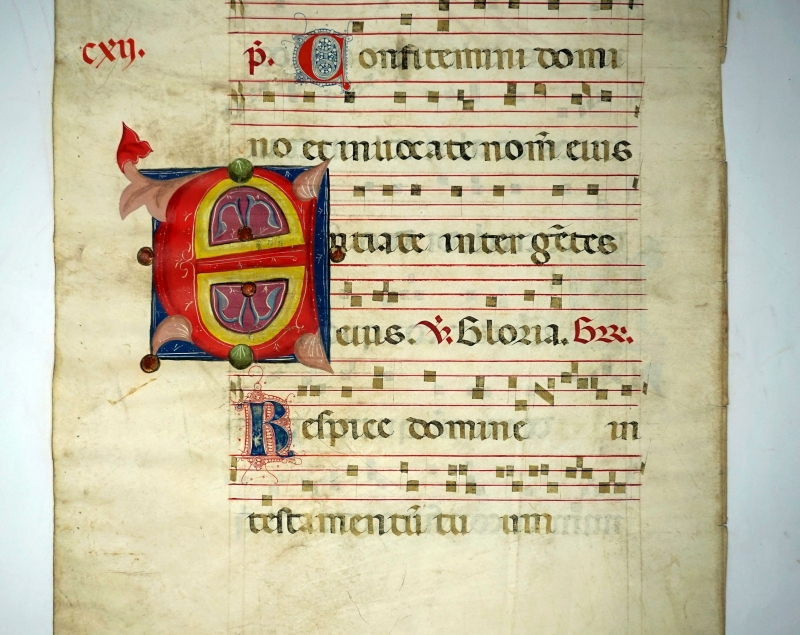 cxij.
p̃. Confitemini domi
no et inuocate nom̃ eius
E
ntiate inter gẽtes
eius. ℣: Gloria. Grr.
Respice domine in
testamentũ tu um